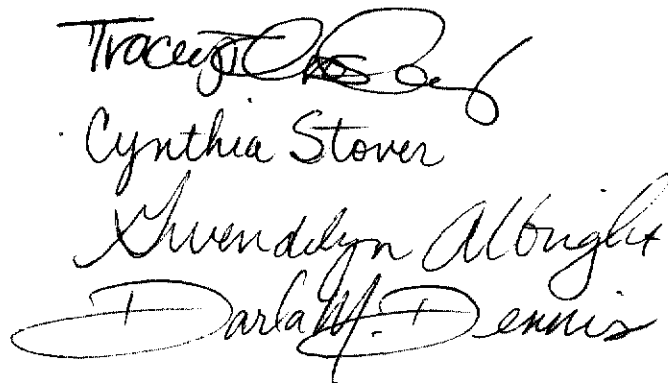 Tracey
Cynthia Stover
Gwendelyn Albright
Darla M. Dennis